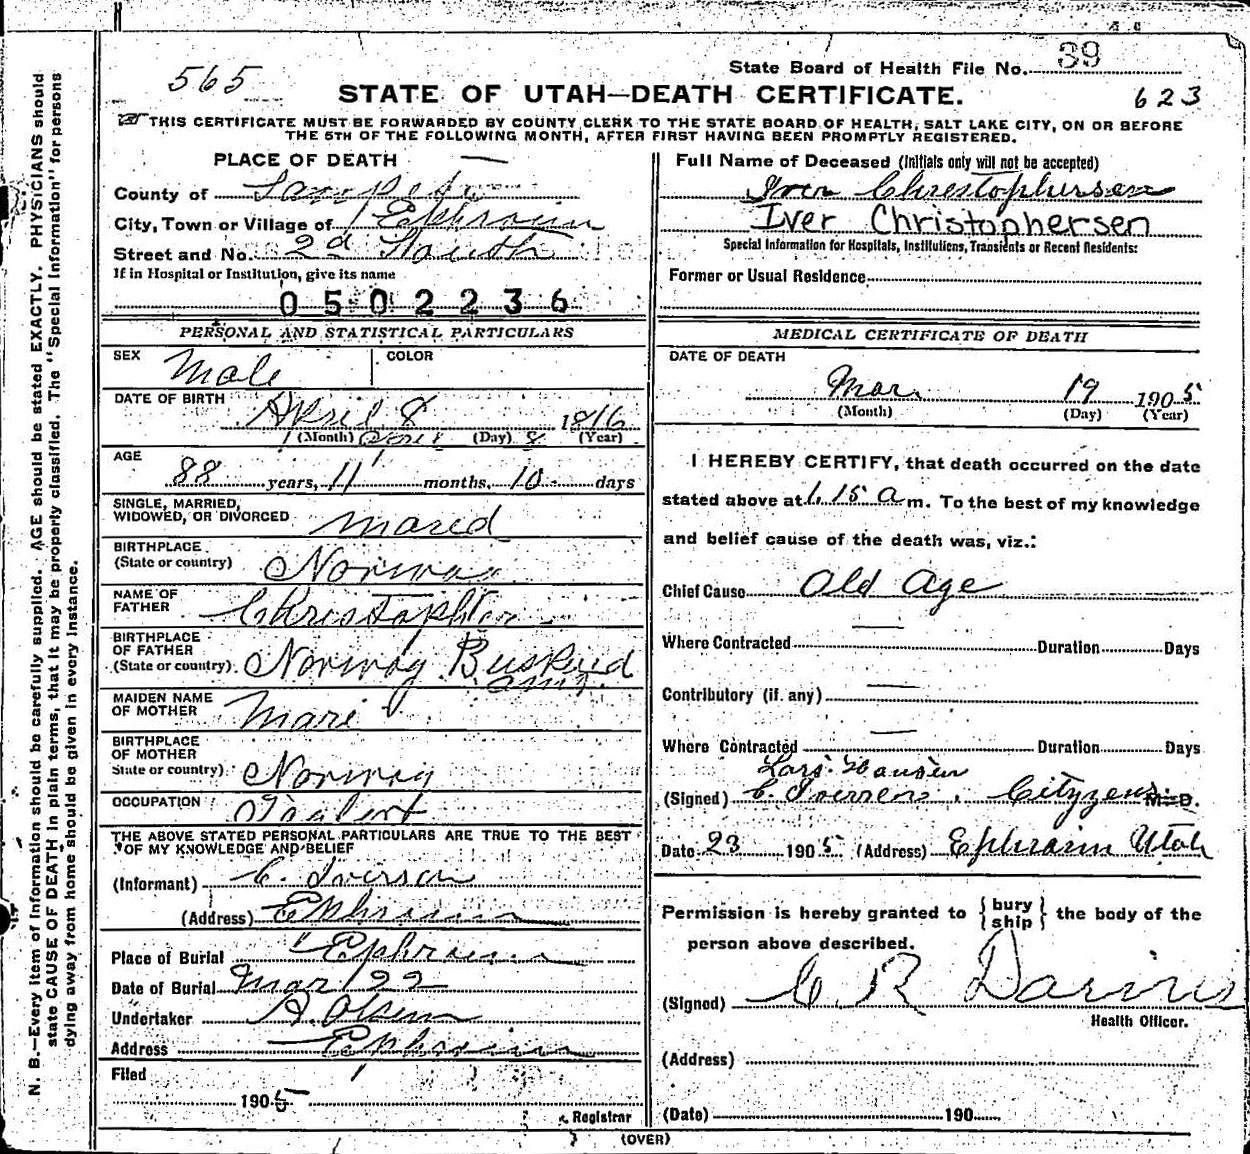 565
State Board of Health File No. 39
STATE OF UTAH—DEATH CERTIFICATE.
623
THIS CERTIFICATE MUST BE FORWARDED BY COUNTY CLERK TO THE STATE BOARD OF HEALTH, SALT LAKE CITY, ON OR BEFORE
THE 5TH OF THE FOLLOWING MONTH, AFTER FIRST HAVING BEEN PROMPTLY REGISTERED.
N. B.—Every item of information should be carefully supplied. AGE should be stated EXACTLY. PHYSICIANS should
state CAUSE OF DEATH in plain terms, that it may be properly classified. The "Special Information" for persons
dying away from home should be given in every instance.
PLACE OF DEATH —
County of Sanpete
City, Town or Village of Ephraim
Street and No. 2d South
If in Hospital or Institution, give its name
0502236
PERSONAL AND STATISTICAL PARTICULARS
SEX Male COLOR
DATE OF BIRTH April 8 1816
(Month) April (Day) 8 (Year)
AGE
88 years, 11 months, 10 days
SINGLE, MARRIED,
WIDOWED, OR DIVORCED Mared
BIRTHPLACE
(State or country) Norway
NAME OF
FATHER Christopher
BIRTHPLACE
OF FATHER
(State or country) Norway Buskrud
amt.
MAIDEN NAME
OF MOTHER Mari
BIRTHPLACE
OF MOTHER
State or country) Norway
OCCUPATION
THE ABOVE STATED PERSONAL PARTICULARS ARE TRUE TO THE BEST
OF MY KNOWLEDGE AND BELIEF
(Informant) C. Iverson
(Address) Ephraim
Place of Burial Ephraim
Date of Burial Mar 22
Undertaker A. Olsen
Address Ephraim
Filed
1905
Registrar
Full Name of Deceased (Initials only will not be accepted)
Iver Christophersen
Iver Christophersen
Special Information for Hospitals, Institutions, Transients or Recent Residents:
Former or Usual Residence
MEDICAL CERTIFICATE OF DEATH
DATE OF DEATH
Mar 19 1905
(Month) (Day) (Year)
I HEREBY CERTIFY, that death occurred on the date
stated above at 1.15 a m. To the best of my knowledge
and belief cause of the death was, viz.:
Chief Cause Old Age
Where Contracted — Duration Days
Contributory (if any) —
Where Contracted — Duration Days
Lars Hansen
(Signed) C. Iversen. Cityzens M.D.
Date 23 1905 (Address) Ephraim Utah
Permission is hereby granted to {bury
ship} the body of the
person above described.
(Signed) C R Dorius
Health Officer.
(Address)
(Date) 190
(OVER)